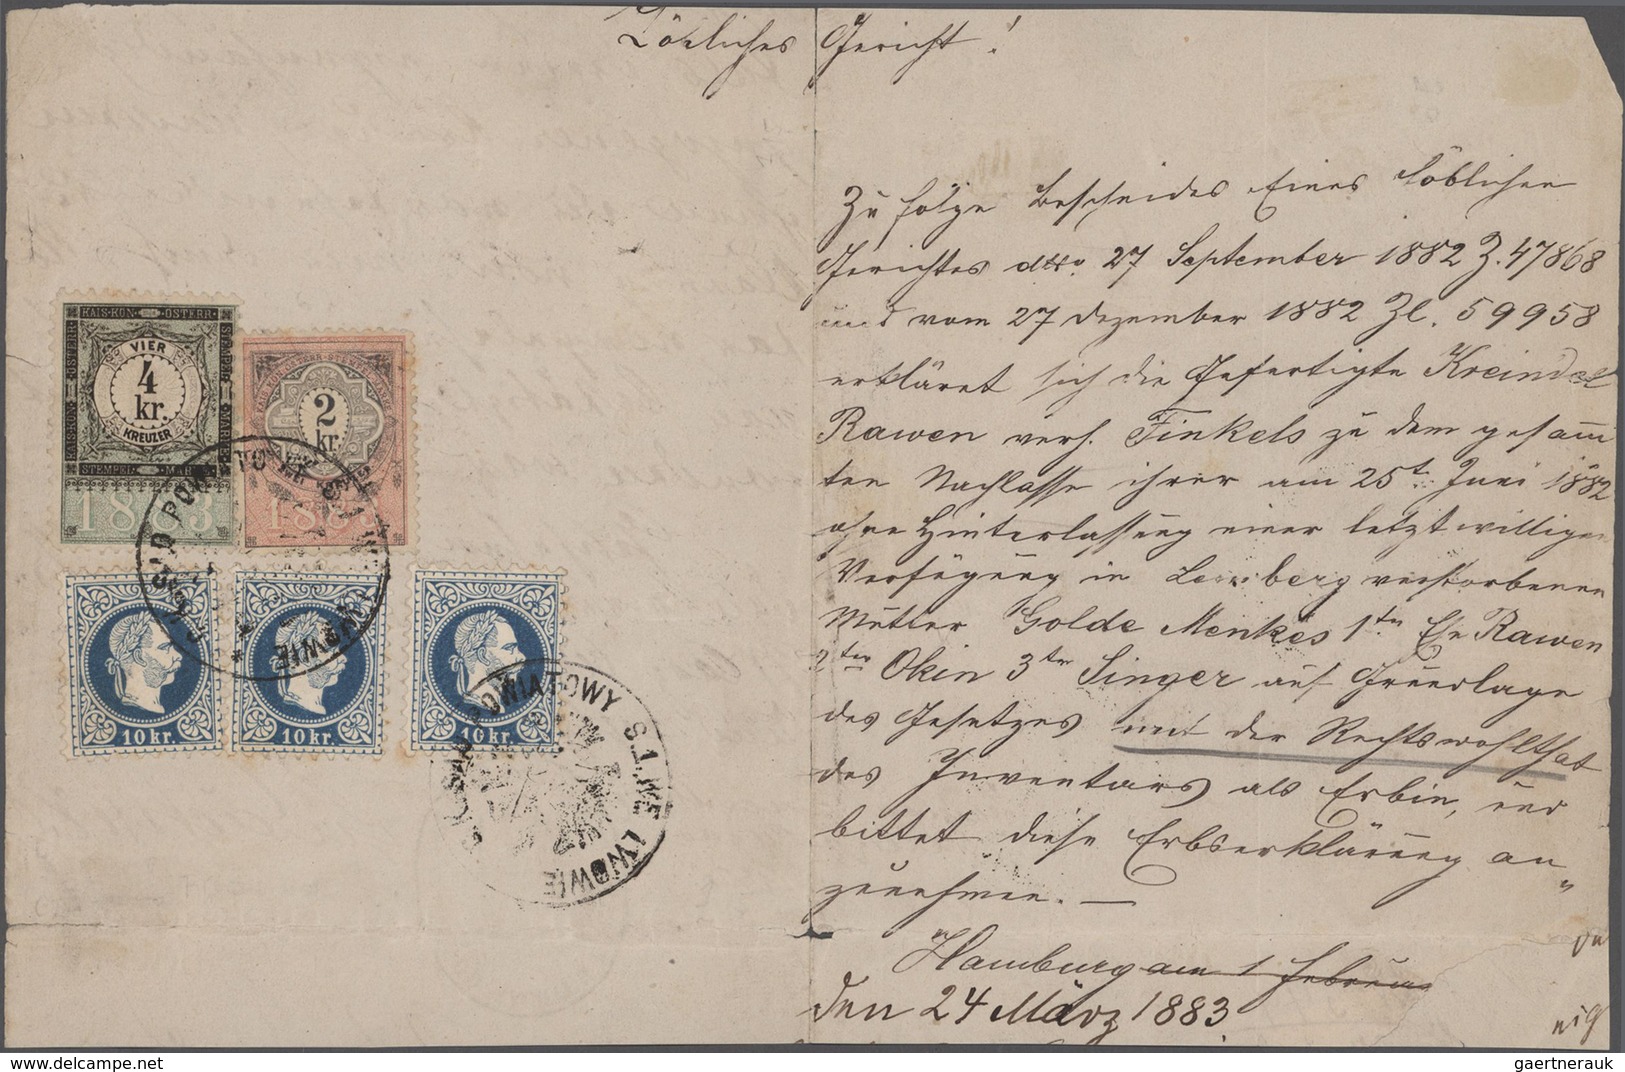 Löbliches Gericht!
Zu folge Bescheides Eines Löblichen
Gerichtes dtto. 27 September 1882 Z. 47868
und vom 27 Dezember 1882 Zl. 59958
erkläret sich die Gefertigte Kreindel
Rawen verh. Finkels zu dem gesamm
ten Nachlasse ihrer am 25t. Juni 1882
ohne Hinterlassung einer letztwilligen
Verfügung in Lemberg verstorbenen
Mutter Golde Menkes 1tn. Ehe Rawen
2ten Okin 3tn Singer auf Grundlage
des Gesetzes mit der Rechtswohlthat
des Inventars als Erbin, und
bittet diese Erbserklärung an„
zunehmen. —
Hamburg am 1 Februar
den 24 März 1883.
KAIS. KÖN. ÖSTERR.
STEMPEL MARKE
VIER
4
kr.
KREUZER
STEMPEL MARKE
1883
KAIS. KÖN. ÖSTERR. STEMPELMARKE
2
kr.
1883
C.K. SĄD POWIATOWY S.I. WE LWOWIE
10 kr.
10 kr.
10 kr.
C.K. SĄD POWIATOWY S.I. WE LWOWIE
gaertnerauk